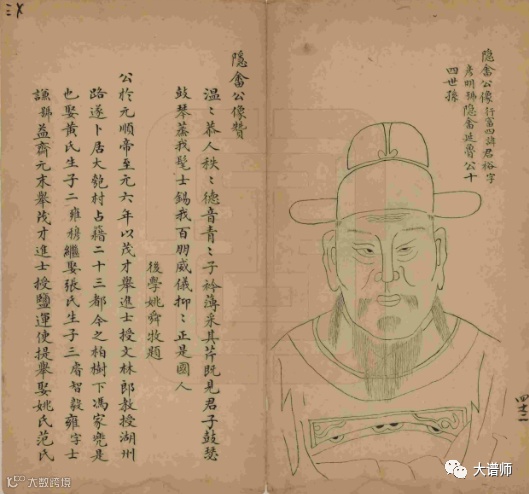 隐畲公像行富四諱君裕字
彦明號隐畲延魯公十
四世孫
隐畲公像贊
温〻恭人秩〻德音青〻子衿薄采其芹既見君子鼓瑟
鼓琴蒸我髦士錫我百朋威儀抑〻正是國人
後學姚舜牧題
公於元順帝至元六年以茂才舉進士授文林郎教授湖州
路遂卜居大錢村占籍二十三都今之柏樹下馮家兜是
也娶黄氏生子二雍穆繼娶張氏生子三睿智毅雍字士
謙號益齋元末舉茂才進士授鹽運使提舉娶姚氏范氏
大数跨境
大谱师